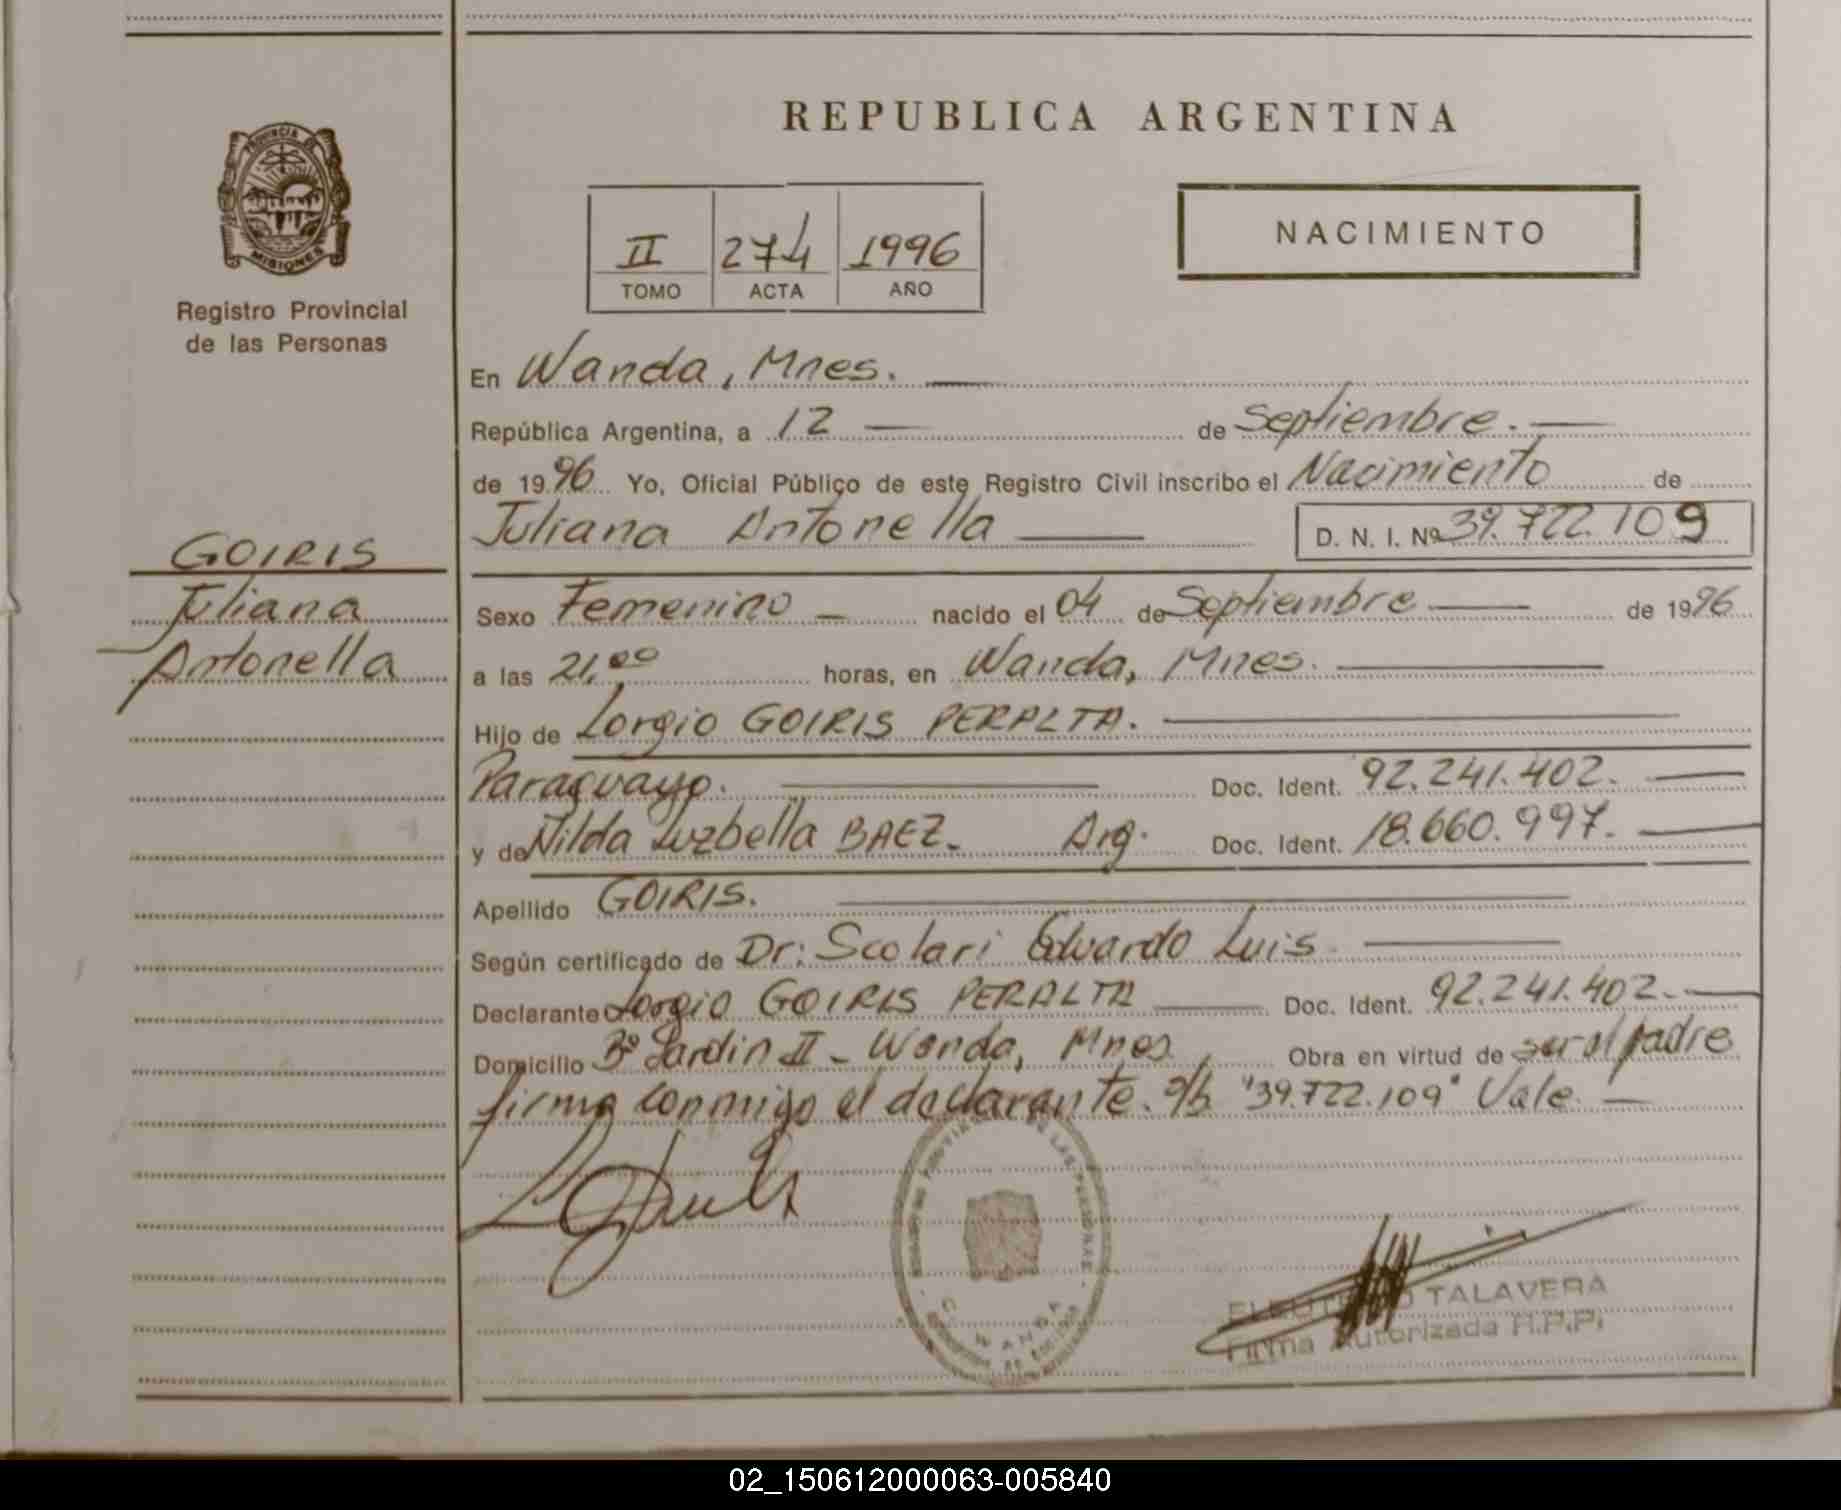 PROVINCIA DE
MISIONES
Registro Provincial
de las Personas
GOIRIS
Juliana
Antonella
REPUBLICA ARGENTINA
II 274 1996
TOMO ACTA AÑO
NACIMIENTO
En Wanda, Mnes.
República Argentina, a 12 de Septiembre.
de 1996 Yo, Oficial Público de este Registro Civil inscribo el Nacimiento de
Juliana Antonella D. N. I. Nº 39.722.109
Sexo Femenino nacido el 04 de Septiembre de 1996
a las 21,00 horas, en Wanda, Mnes.
Hijo de Lorgio GOIRIS PERALTA.
Paraguayo. Doc. Ident. 92.241.402.
y de Nilda Luzbella BAEZ. Arg. Doc. Ident. 18.660.997.
Apellido GOIRIS.
Según certificado de Dr: Scolari Eduardo Luis
Declarante Lorgio GOIRIS PERALTA Doc. Ident. 92.241.402.
Domicilio Bº Jardin II - Wanda, Mnes Obra en virtud de ser el padre
firma conmigo el declarante. s/b "39.722.109" Vale.
WANDA
ELEUTERIO TALAVERA
Firma Autorizada R.P.P.
02_150612000063-005840